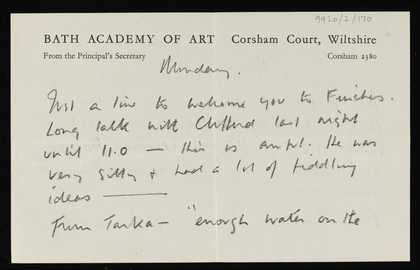 9920/2/170
BATH ACADEMY OF ART Corsham Court, Wiltshire
From the Principal's Secretary Corsham 2380
Monday.
Just a line to welcome you to Finches.
Long talk with Clifford last night
until 11.0 — this is awful. He was
very silly & had a lot of fiddling
ideas ———
From Tanka — "enough water on the